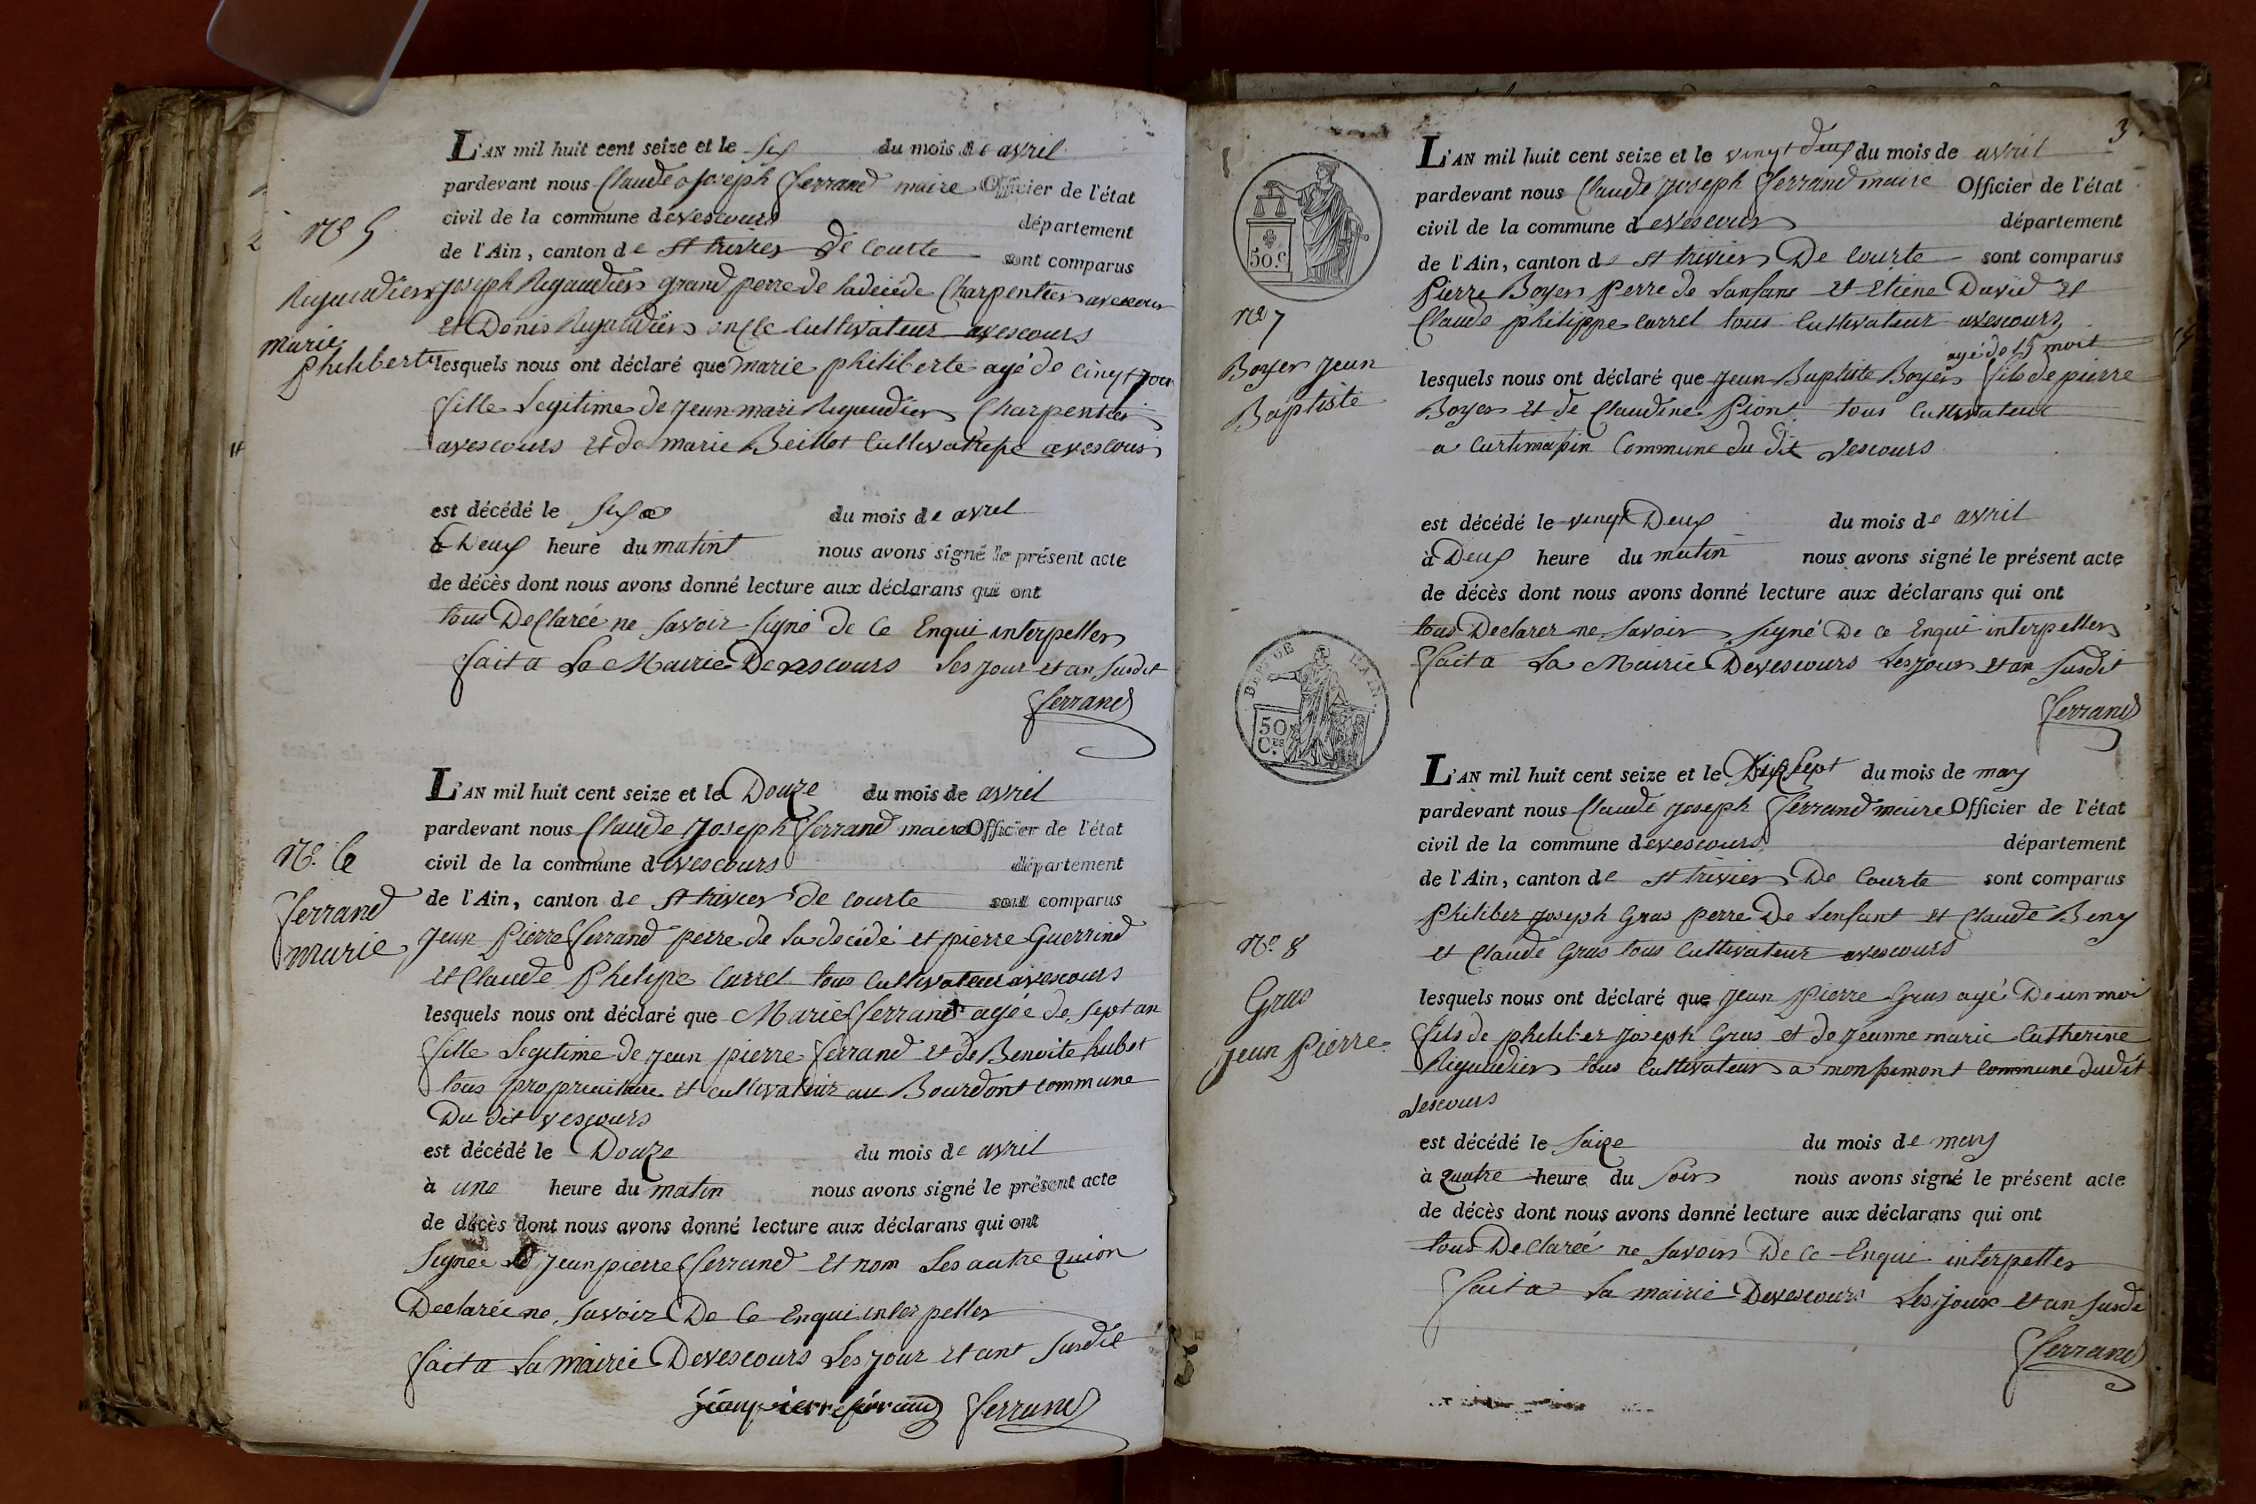 L'AN mil huit cent seize et le six du mois de avril
pardevant nous Claude joseph ferrand maire Officier de l'état
civil de la commune devescours département
de l'Ain, canton de st trivier de courte sont comparus
N° 5
Rigaudier
marie
philiberte
joseph Rigaudier grand perre de la décéde Charpentier avescour
et Denis Rigaudier oncle Cultivateur avescours
lesquels nous ont déclaré que marie philiberte agé de cinqt jour
fille Legitime de jean mari Rigaudier Charpentier
avescours et de marie Beillot Cultivatrise avescours
est décédé le six du mois de avril
à Deux heure du matint nous avons signé le présent acte
de décès dont nous avons donné lecture aux déclarans qui ont
tous Declareé ne savoir signé de Ce Enqui interpeller
fait a La Mairie De vescours Les jour et an susdit
ferrand
L'AN mil huit cent seize et le Douze du mois de avril
pardevant nous Claude joseph ferrand maire Officier de l'état
civil de la commune devescours département
de l'Ain, canton de st trivier de courte sont comparus
N° 6
ferrand
marie
jean Pierre ferrand perre de la decédé et pierre Guerrind
et Claude Philipe Carrel tous Cultivateur avescours
lesquels nous ont déclaré que Marie ferrand agée de sept an
fille Legitime de jean pierre ferrand et de Benoite hubot
tous propriaitaire et cultivateur au Bourdont commune
Du dit vescours
est décédé le Douze du mois de avril
à une heure du matin nous avons signé le présent acte
de décès dont nous avons donné lecture aux déclarans qui ont
signee jean pierre ferrand et nom Les autre quion
Declareé ne savoir De Ce Enqui interpeller
fait a La mairie Devescours Les jour et ant susdit
jean pierre ferrand ferrand
3
50.c
L'AN mil huit cent seize et le vingt deux du mois de avril
pardevant nous Claude joseph ferrand maire Officier de l'état
civil de la commune devescours département
de l'Ain, canton de st trivier De Courte sont comparus
N° 7
Boyer jean
Baptiste
Pierre Boyer perre de Lanfans et Etiene David et
Claude philippe Carrel tous Cultivateur avescours
agé de 15 moit
lesquels nous ont déclaré que jean Baptiste Boyer fils de pierre
Boyer et de Claudine Piont tous Cultivateur
a Curtimapin Commune du dit Vescours
est décédé le vingt Deux du mois de avril
à Deux heure du matin nous avons signé le présent acte
de décès dont nous avons donné lecture aux déclarans qui ont
tous Declarer ne savoir signé De ce Enqui interpeller
fait a La Mairie Devescours Les jour et an susdit
ferrand
DEP. DE L'AIN.
50
Ces
L'AN mil huit cent seize et le Dix sept du mois de may
pardevant nous Claude joseph ferrand maire Officier de l'état
civil de la commune devescours département
de l'Ain, canton de st trivier De Courte sont comparus
N° 8
Gras
jean Pierre
Philiber joseph Gras perre De Lenfant et Claude Beny
et Claude Gras tous Cultivateur avescours
lesquels nous ont déclaré que jean Pierre Gras agé De un moi
fils de philiber joseph Gras et de jeanne marie Catherine
Rigaudier tous Cultivateur a monpimont Commune dudit
Vescours
est décédé le saize du mois de may
à quatre heure du soir nous avons signé le présent acte
de décès dont nous avons donné lecture aux déclarans qui ont
tous Declareé ne savoir De Ce Enqui interpeller
fait a La mairie Devescours Les jour et an susdi
ferrand